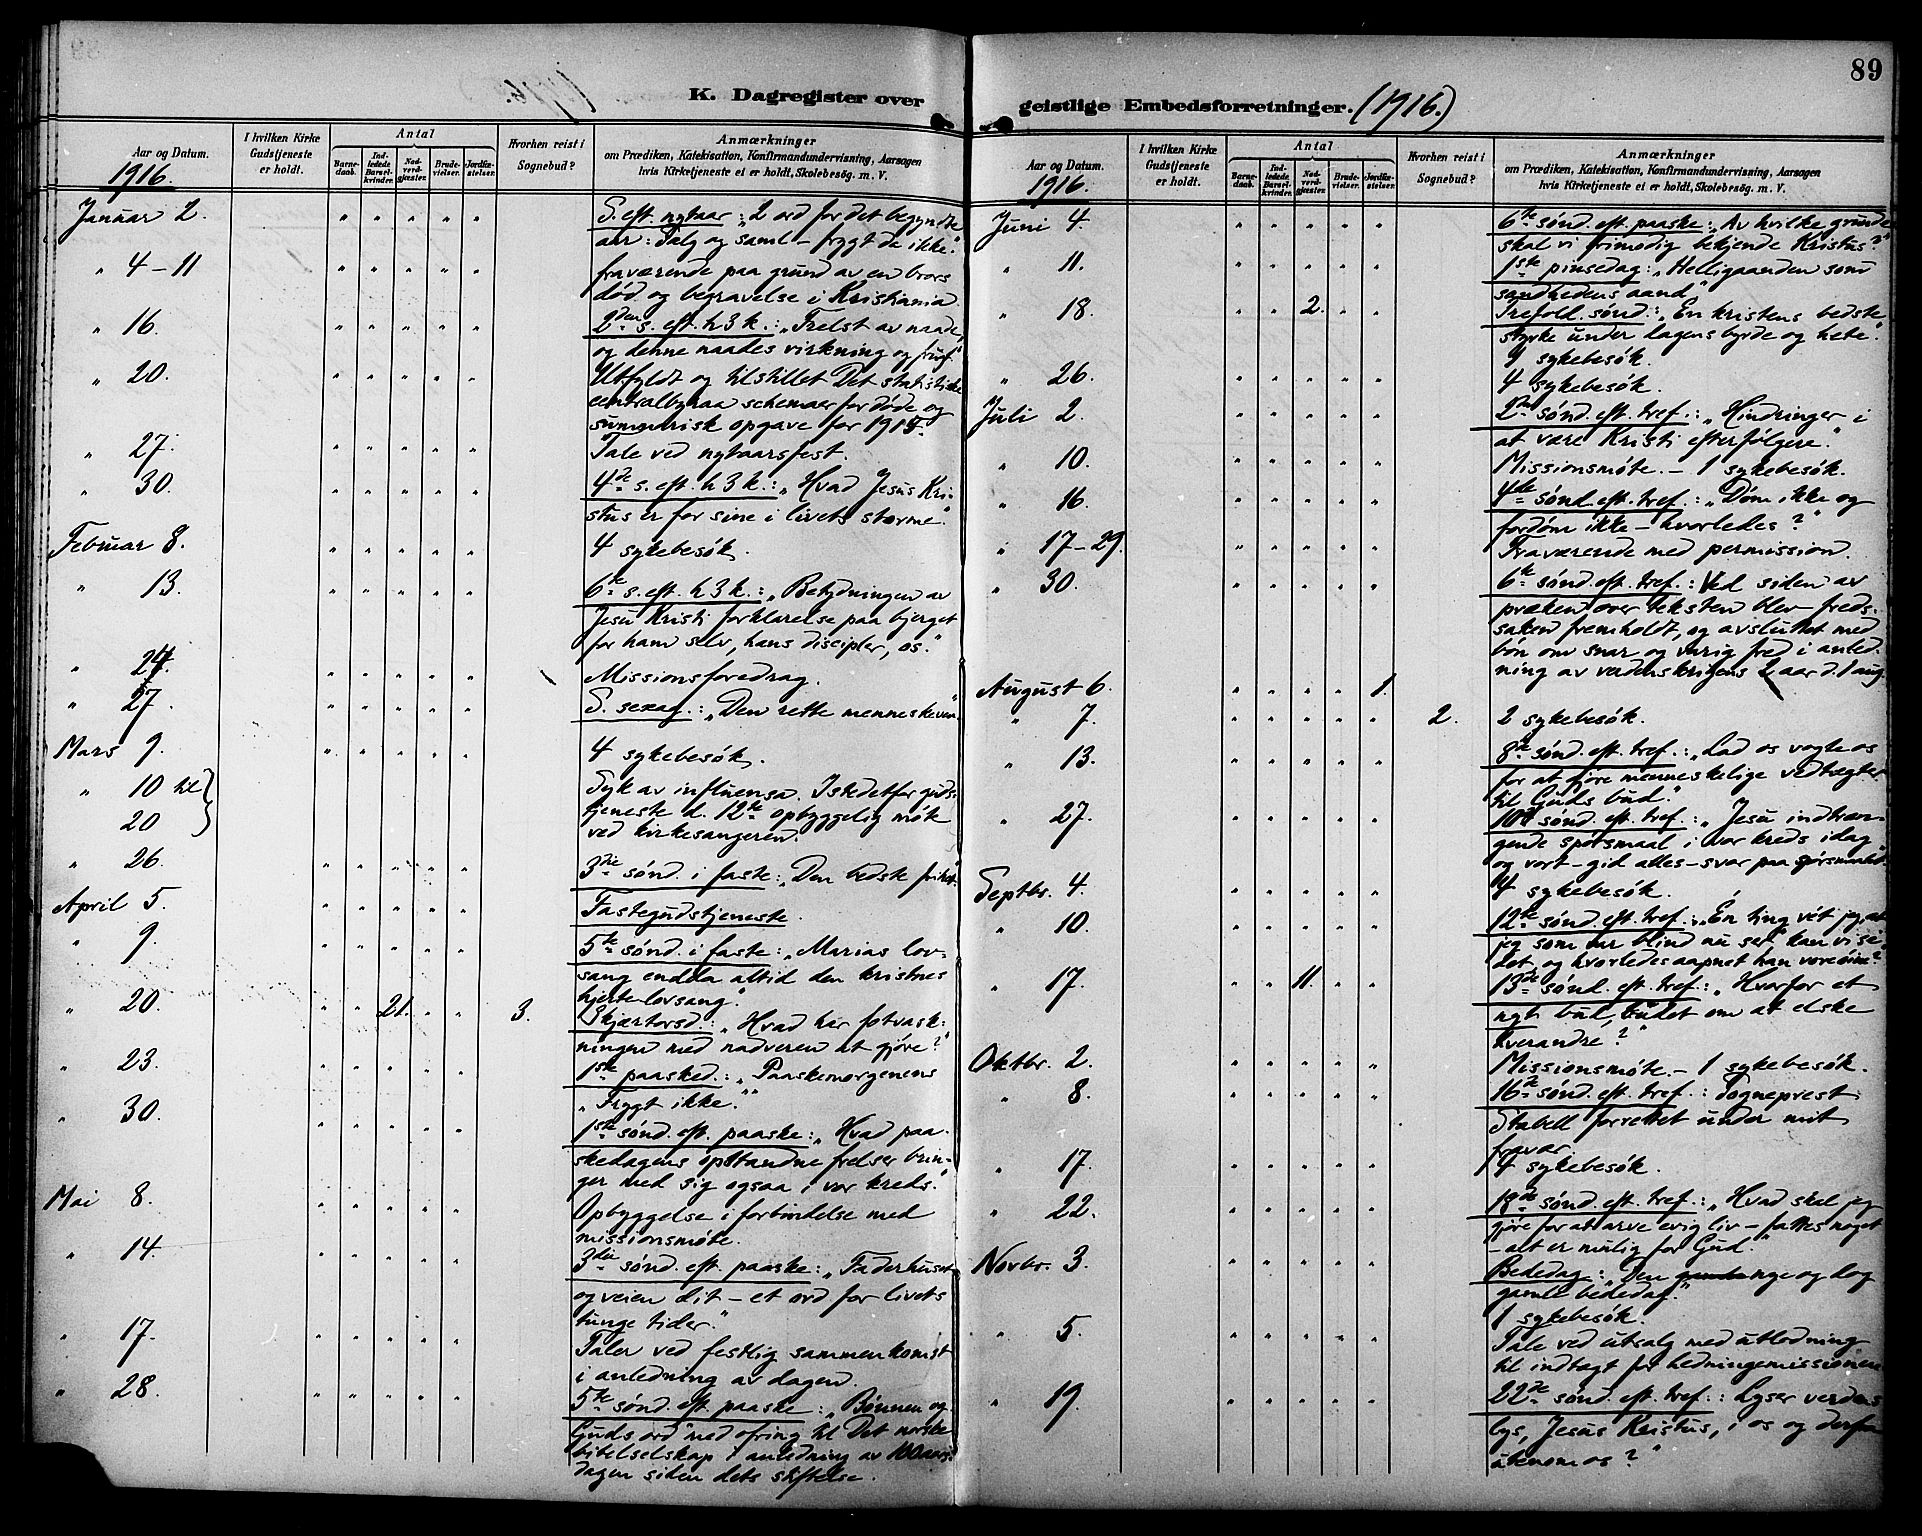 89
K. Dagregister over
Aar og Datum.
I hvilken Kirke Gudstjeneste er holdt.
Antal
Barnedaab.
Indledede Barselkvinder.
Nadverdgjæster.
Brudevielser.
Jordfæstelser.
Hvorhen reist i Sognebud?
Anmærkninger
om Prædiken, Katekisation, Konfirmandundervisning, Aarsagen
hvis Kirketjeneste ei er holdt, Skolebesøg. m. V.
1916.
Januar 2. " " " " " S. eft. nytaar: „2 ord for det begyndte
aar: Salg og saml – frygt de ikke."
" 4–11 " " " " " fraværende paa grund av en brors
død og begravelse i Kristiania.
" 16. " " " " " 2den s. eft. h 3 k.: „Frelst av naade,
og denne naades virkning og frugt"
" 20. " " " " " Utfyldt og tilstillet Det statistiske
centralbyraa schemaer for døde og
summarisk opgave for 1915.
" 27. " " " " " Tale ved nytaarsfest.
" 30. " " " " " 4de s. eft. h 3 k.: „Hvad Jesus Kri-
stus er for sine i livets storme."
Februar 8. " " " " " 4 sykebesøk.
" 13. " " " " " 6te s. eft. h 3 k.: „Betydningen av
Jesu Kristi forklarelse paa bjerget
for ham selv, hans discipler, os."
" 24. " " " " " Missionsforedrag.
" 27. " " " " " S. sexag.: „Den rette menneskeven"
Mars 9. " " " " " 4 sykebesøk.
" 10 til Syk av influensa. Istedetfor guds-
20 tjeneste d. 12te opbyggelig møte
ved kirkesangeren.
" 26. " " " " " 3die sønd. i faste: „Den bedste frihet."
April 5. " " " " " Fastegudstjeneste.
" 9. " " " " " 5te sønd. i faste: „Marias lov-
sang endda altid den kristnes
hjerte-lovsang."
" 20. " " 21. " " 3. Skjærtorsd.: „Hvad har fotvask-
ningen med nadveren at gjøre?"
" 23. " " " " " 1ste paasked.: „Paaskemorgenens
„Frygt ikke.""
" 30. " " " " " 1ste sønd. eft. paaske: „Hvad paa-
skedagens opstandne frelser brin-
ger med sig ogsaa i vor kreds."
Mai 8. " " " " " Opbyggelse i forbindelse med
missionsmøte.
" 14. " " " " " 3die sønd. eft. paaske: „Faderhuset
og veien dit – et ord for livets
tunge tider."
" 17. " " " " " Taler ved festlig sammenkomst
i anledning av dagen.
" 28. " " " " " 5te sønd. eft. paaske: „Bønnen og
Guds ord" med ofring til Det norske
bibelselskap i anledning av 100aars-
dagen siden dets stiftelse.
geistlige Embedsforretninger. (1916.)
Aar og Datum.
I hvilken Kirke Gudstjeneste er holdt.
Antal
Barnedaab.
Indledede Barselkvinder.
Nadverdgjæster.
Brudevielser.
Jordfæstelser.
Hvorhen reist i Sognebud?
Anmærkninger
om Prædiken, Katekisation, Konfirmandundervisning, Aarsagen
hvis Kirketjeneste ei er holdt, Skolebesøg. m. V.
1916.
Juni 4. " " " " " 6te sønd. eft. paaske: „Av hvilke grunde
skal vi frimodig bekjende Kristus?"
" 11. " " " " " 1ste pinsedag: „Helligaanden som
sandhedens aand"
" 18. " " 2. " " Trefold. sønd.: „En kristens bedste
styrke under dagens byrde og hete."
4 sykebesøk.
" 26. " " " " " 4 sykebesøk.
Juli 2. " " " " " 2den sønd. eft. tref.: „Hindringer i
at være Kristi efterfølgere."
" 10. " " " " " Missionsmøte. – 1 sykebesøk.
" 16. " " " " " 4de sønd. eft. tref.: „Døm ikke og
fordøm ikke – hvorledes?"
" 17–29. " " " " " Fraværende med permission.
" 30. " " " " " 6te sønd. eft. tref.: Ved siden av
præken over teksten blev freds-
saken fremholdt, og avsluttet med
bøn om snar og varig fred i anled-
ning av verdenskrigens 2 aar d. 1 aug.
August 6. " " " " 1.
" 7. " " " " " 2. 2 sykebesøk.
" 13. " " " " " 8de sønd. eft. tref.: „Lad os vogte os
for at gjøre menneskelige vedtægter
til Guds bud."
" 27. " " " " " 10de sønd. eft. tref.: „Jesu indtræn-
gende spørsmaal i vor kreds idag
og vort – gid alles – svar paa spørsmaalet."
Septbr. 4. " " " " " 4 sykebesøk.
" 10. " " " " " 12te sønd. eft. tref.: „Én ting vét jeg, at
jeg som var blind nu ser", kan vi si
det, og hvorledes aapnet han vore øine?
" 17. " " 11. " " 13de sønd. eft. tref.: „Hvorfor et
nyt bud, budet om at elske
hverandre?"
Oktbr. 2. " " " " " Missionsmøte. – 1 sykebesøk.
" 8. " " " " " 16de sønd. eft. tref.: Sogneprest
Stabell forrettet under mit
fravær.
" 17. " " " " " 4 sykebesøk.
" 22. " " " " " 18de sønd. eft. tref.: „Hvad skal jeg
gjøre for at arve evig liv – fattes noget
– alt er mulig for Gud."
Novbr. 3. " " " " " Bededag: „Den nye og dog
gamle bededag."
1 sykebesøk.
" 5. " " " " " Tale ved utsalg med utlodning
til indtægt for hedningemissionen
" 19. " " " " " 22de sønd. eft. tref.: Lyser verdens
lys, Jesus Kristus, i os og derfra
utenom os?"